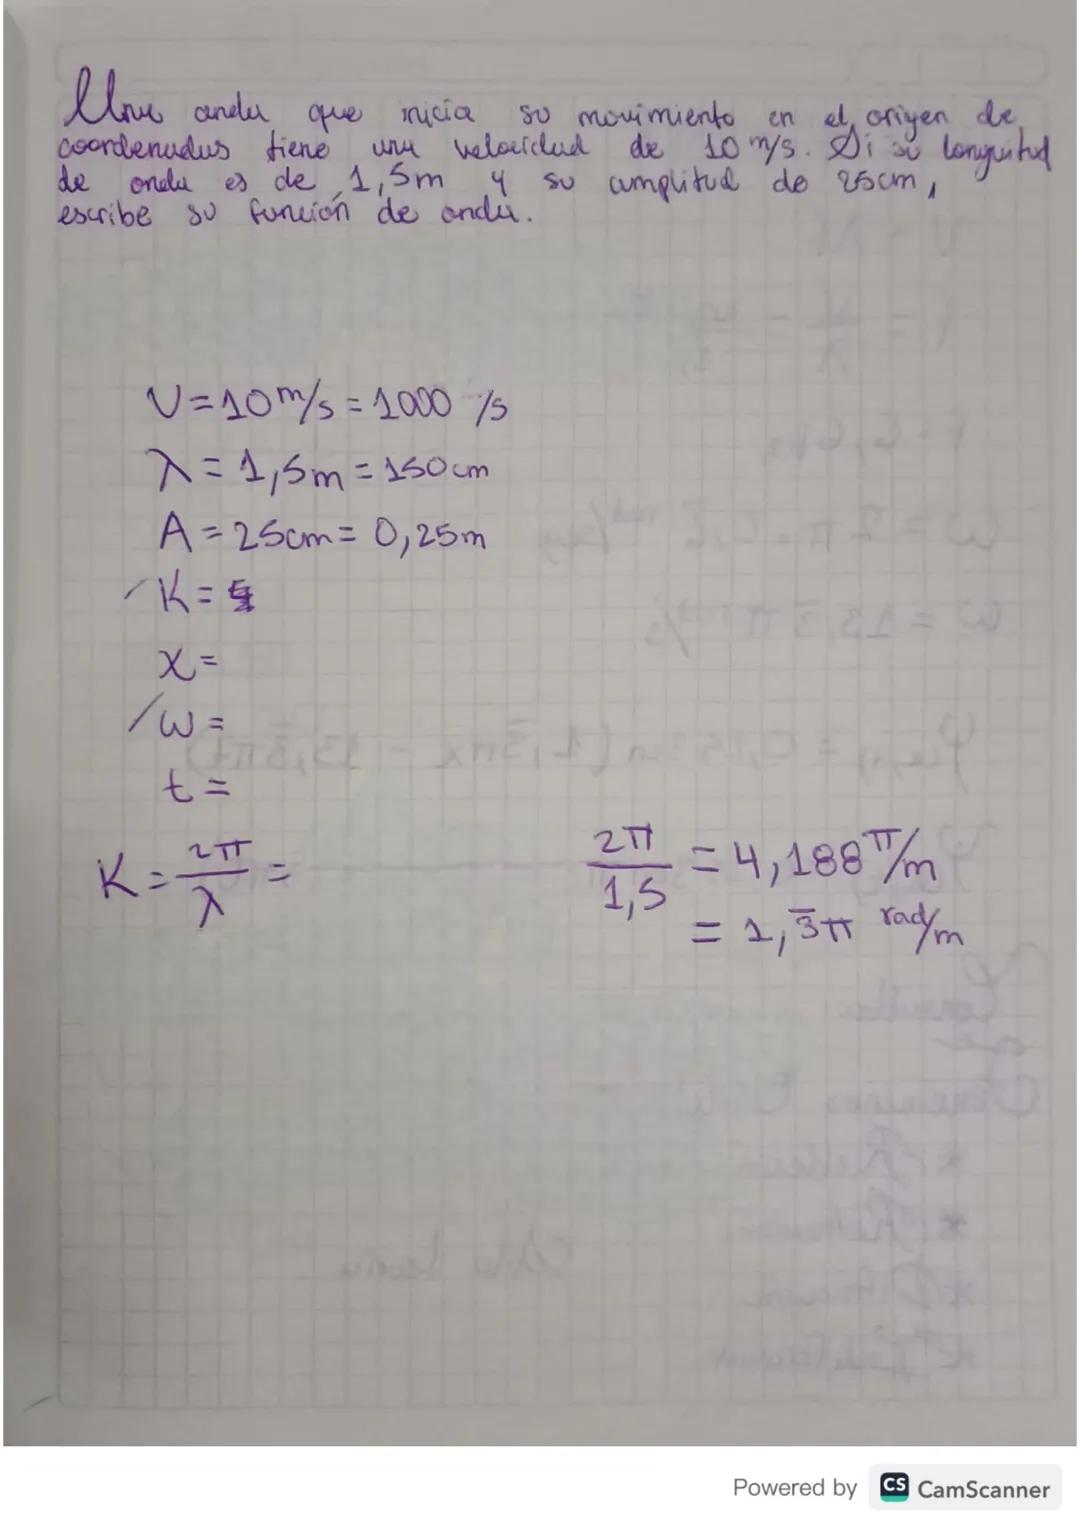 Una onda que inicia su movimiento en el origen de
coordenadas tiene una velocidad de 10 m/s. Si su longuitud
de onda es de 1,5m y su amplitud de 25cm,
escribe su función de onda.
V = 10 m/s = 1000 /s
λ = 1,5m = 150cm
A = 25cm = 0,25m
K =
x =
w =
t =
K = 2π/λ =
2π/1,5 = 4,188 π/m
= 1,3̅π rad/m
Powered by CS CamScanner